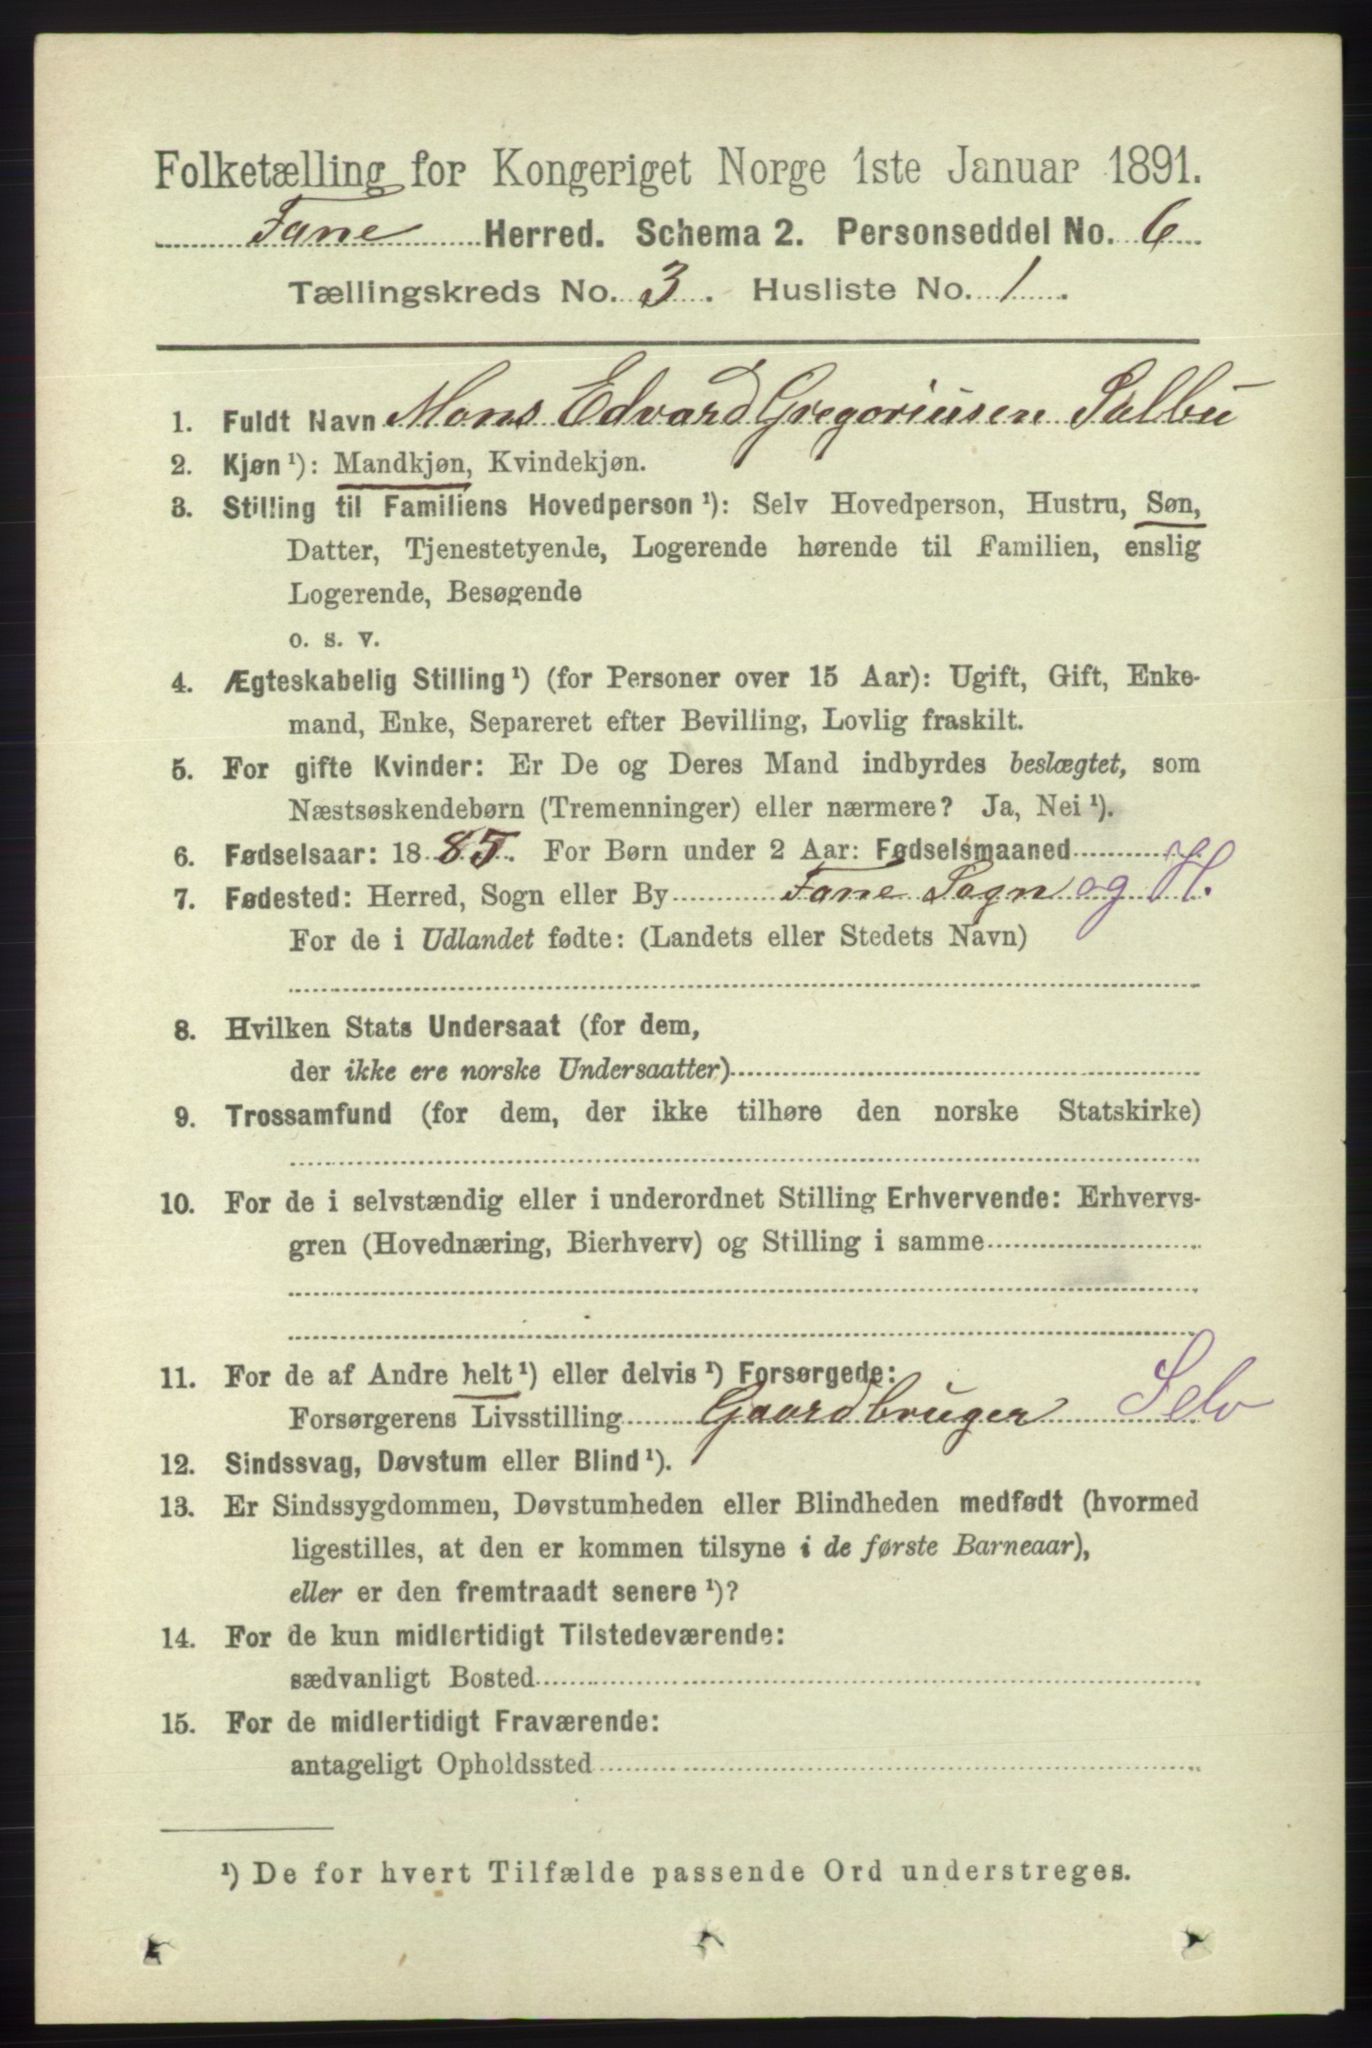 Folketælling for Kongeriget Norge 1ste Januar 1891.
Fane Herred. Schema 2. Personseddel No. 6
Tællingskreds No. 3. Husliste No. 1.
1. Fuldt Navn Mons Edvard Gregoriusen Salbu
2. Kjøn ¹): Mandkjøn, Kvindekjøn.
3. Stilling til Familiens Hovedperson ¹): Selv Hovedperson, Hustru, Søn,
Datter, Tjenestetyende, Logerende hørende til Familien, enslig
Logerende, Besøgende
o. s. v.
4. Ægteskabelig Stilling ¹) (for Personer over 15 Aar): Ugift, Gift, Enke-
mand, Enke, Separeret efter Bevilling, Lovlig fraskilt.
5. For gifte Kvinder: Er De og Deres Mand indbyrdes beslægtet, som
Næstsøskendebørn (Tremenninger) eller nærmere? Ja, Nei ¹).
6. Fødselsaar: 1885. For Børn under 2 Aar: Fødselsmaaned
7. Fødested: Herred, Sogn eller By Fane Sogn og H.
For de i Udlandet fødte: (Landets eller Stedets Navn)
8. Hvilken Stats Undersaat (for dem,
der ikke ere norske Undersaatter)
9. Trossamfund (for dem, der ikke tilhøre den norske Statskirke)
10. For de i selvstændig eller i underordnet Stilling Erhvervende: Erhvervs-
gren (Hovednæring, Bierhverv) og Stilling i samme
11. For de af Andre helt ¹) eller delvis ¹) Forsørgede:
Forsørgerens Livsstilling Gaardbruger Selv
12. Sindssvag, Døvstum eller Blind ¹).
13. Er Sindssygdommen, Døvstumheden eller Blindheden medfødt (hvormed
ligestilles, at den er kommen tilsyne i de første Barneaar),
eller er den fremtraadt senere ¹)?
14. For de kun midlertidigt Tilstedeværende:
sædvanligt Bosted
15. For de midlertidigt Fraværende:
antageligt Opholdssted
¹) De for hvert Tilfælde passende Ord understreges.